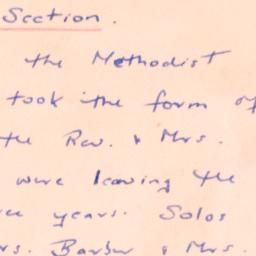 Section.
the Methodist
took the form of
the Rev. & Mrs.
were leaving the
years. Solos
Barber & Mrs.